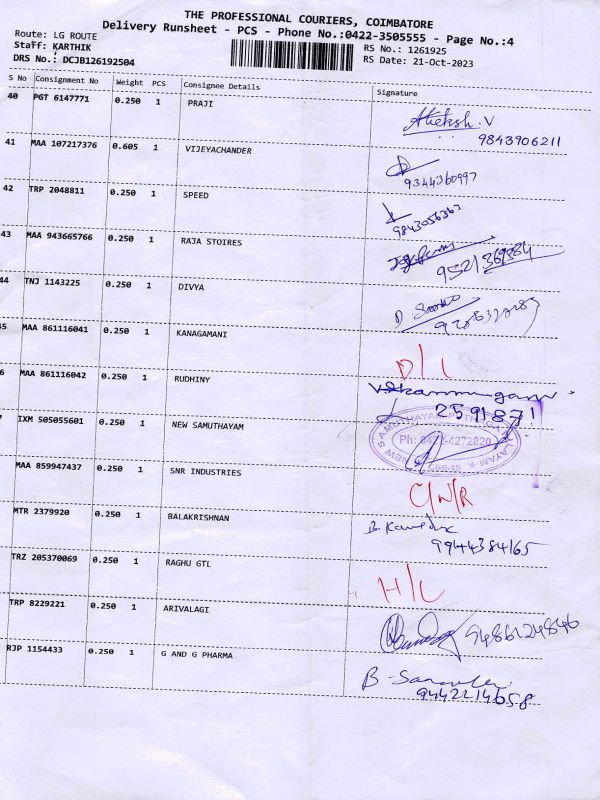 THE PROFESSIONAL COURIERS, COIMBATORE
Delivery Runsheet - PCS - Phone No.:0422-3505555 - Page No.:4
Route: LG ROUTE
Staff: KARTHIK
DRS No.: DCJB126192504
RS No.: 1261925
RS Date: 21-Oct-2023
S No Consignment No Weight PCS Consignee Details Signature
40 PGT 6147771 0.250 1 PRAJI
9843906211
41 MAA 107217376 0.605 1 VIJEYACHANDER
9344360997
42 TRP 2048811 0.250 1 SPEED
9843056363
43 MAA 943665766 0.250 1 RAJA STOIRES
44 TNJ 1143225 0.250 1 DIVYA
45 MAA 861116041 0.250 1 KANAGAMANI
D/L
6 MAA 861116042 0.250 1 RUDHINY
2591871
7 IXM 505055601 0.250 1 NEW SAMUTHAYAM
NEW SAMUTHAYAM PUTHAGA NILAYAM
Ph: 0422-4272820
CBE-15
MAA 859947437 0.250 1 SNR INDUSTRIES
C/N/R
MTR 2379920 0.250 1 BALAKRISHNAN
9944384165
TRZ 205370069 0.250 1 RAGHU GTL
H/L
TRP 8229221 0.250 1 ARIVALAGI
9486124846
RJP 1154433 0.250 1 G AND G PHARMA
9442214658